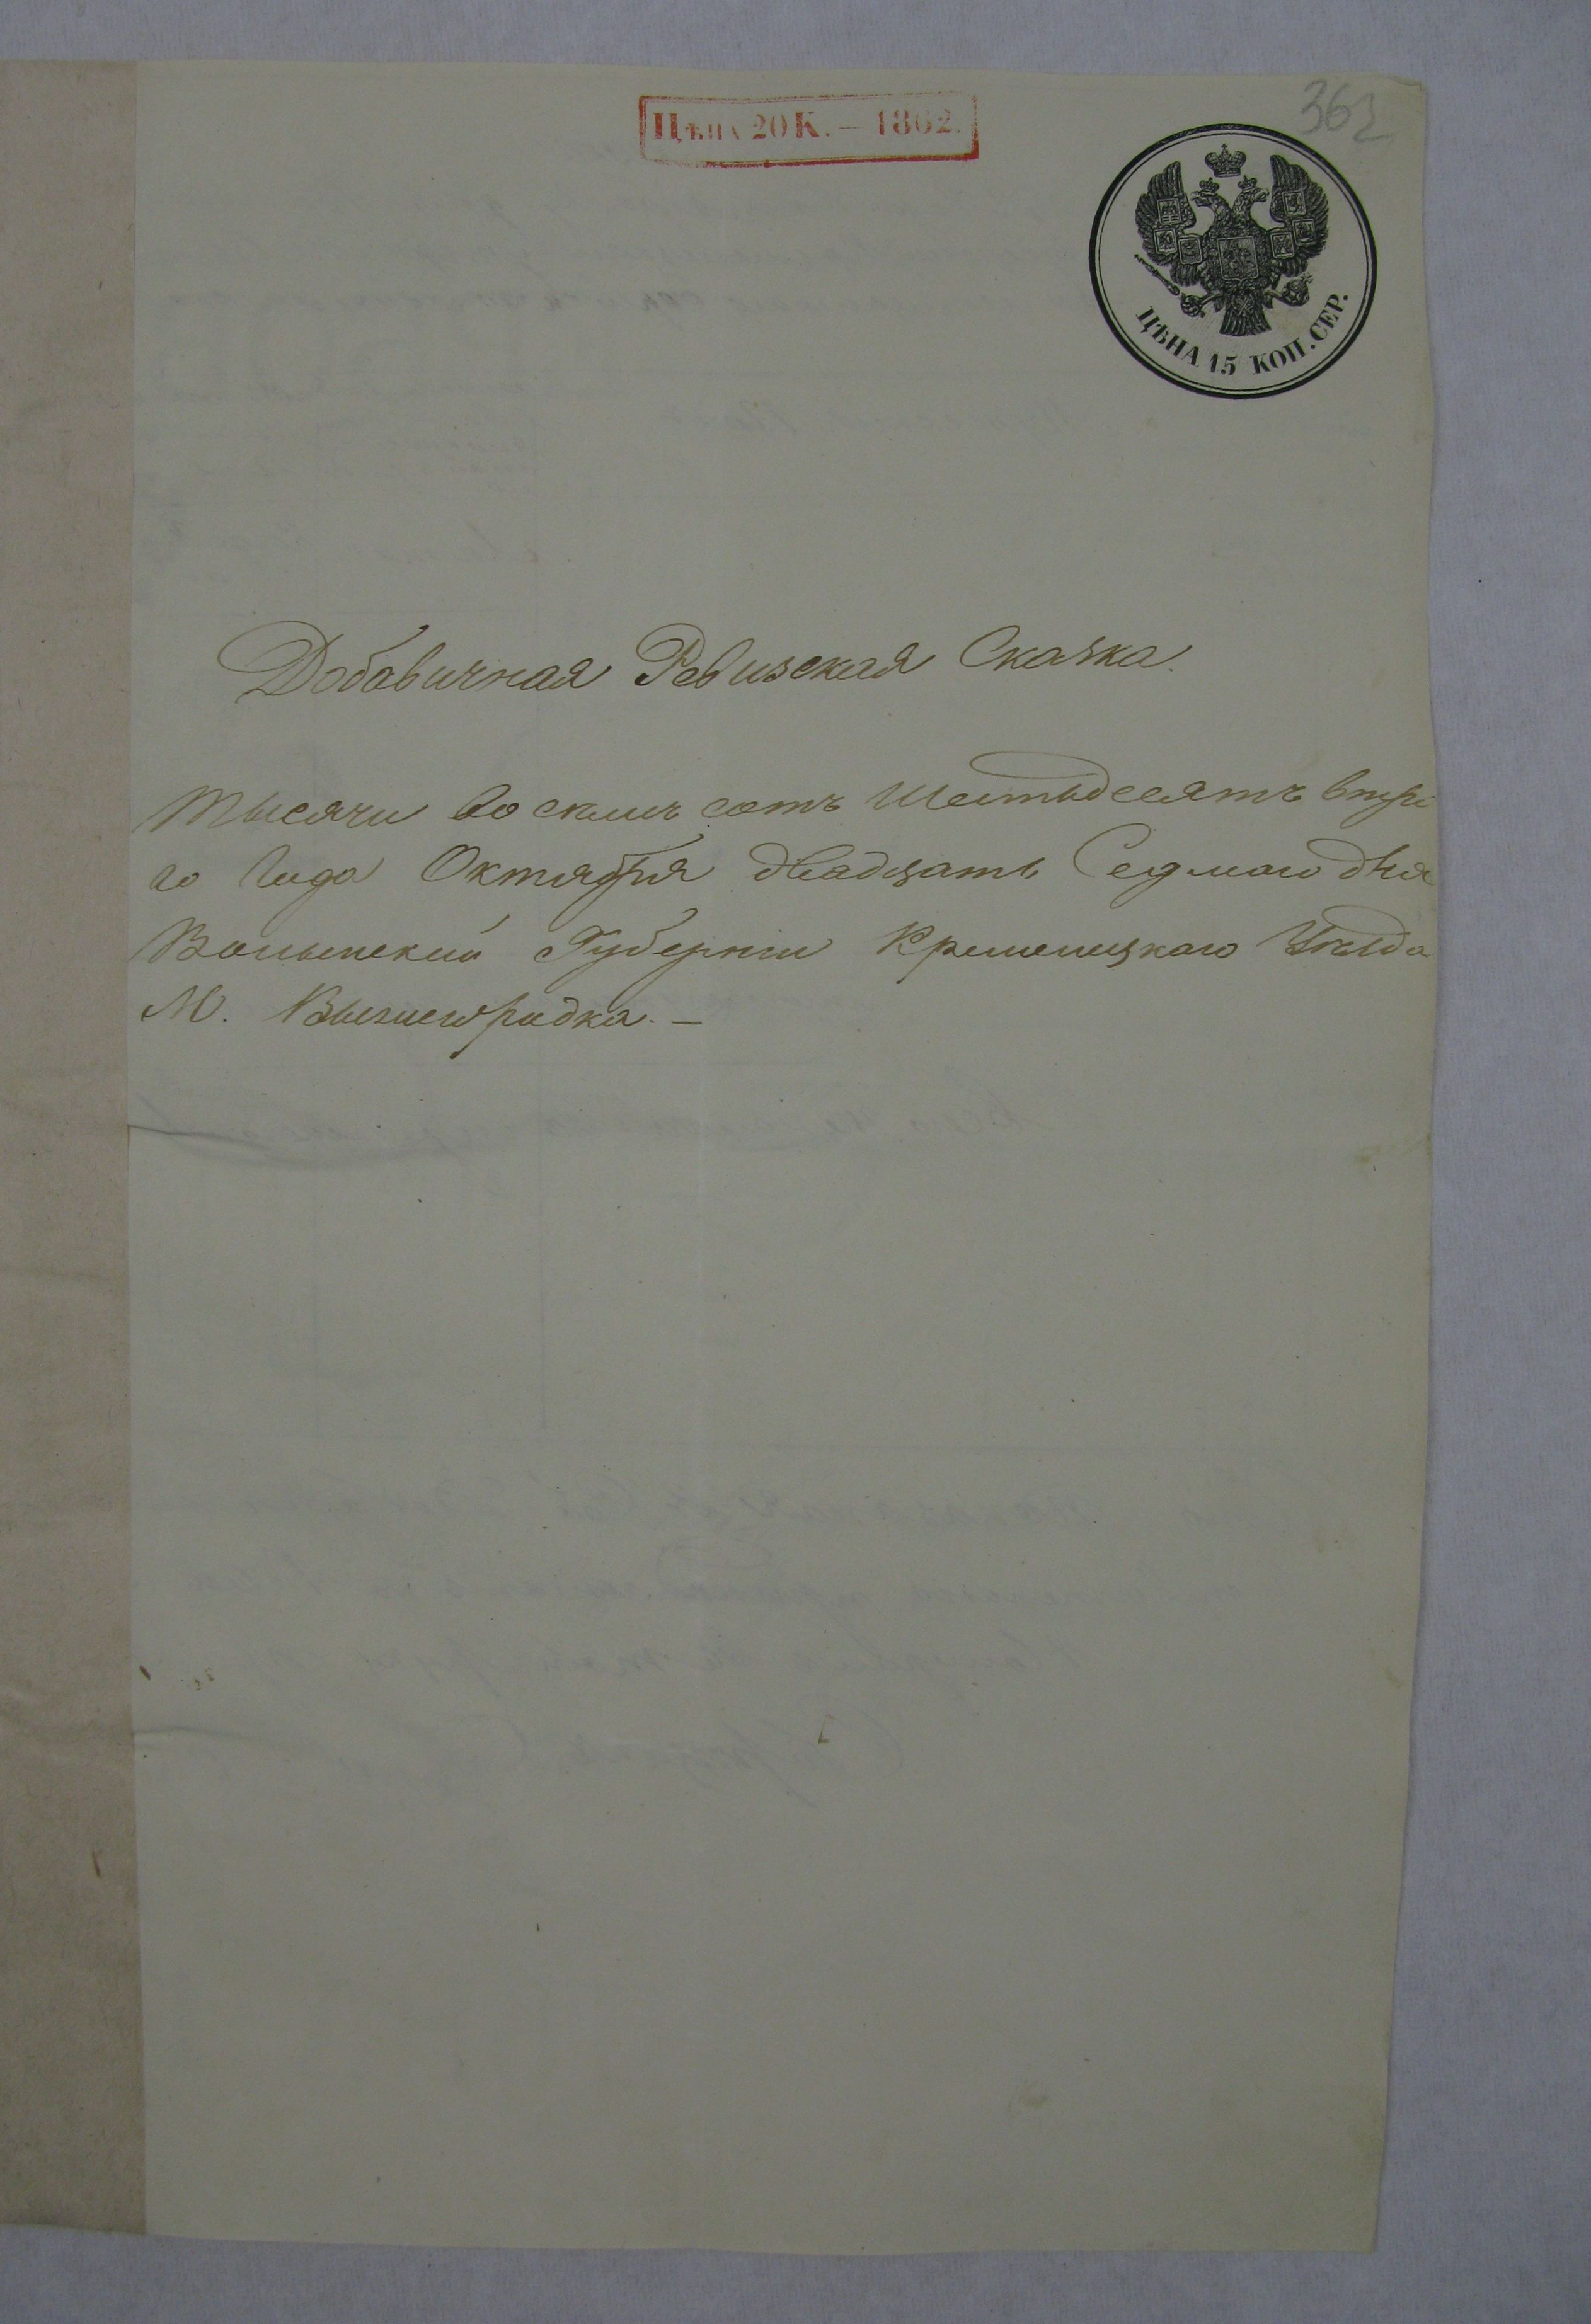 362
Цѣна 20 К. — 1862.
ЦѢНА 15 КОП. СЕР.
Добавичная Ревизская Сказка.
Тысячи восемь сотъ Шестьдесятъ втора
го Года Октября двадцать Седмаго дня
Волынской Губерніи Кременецкаго Уѣзда
М. Вышегрудка. —